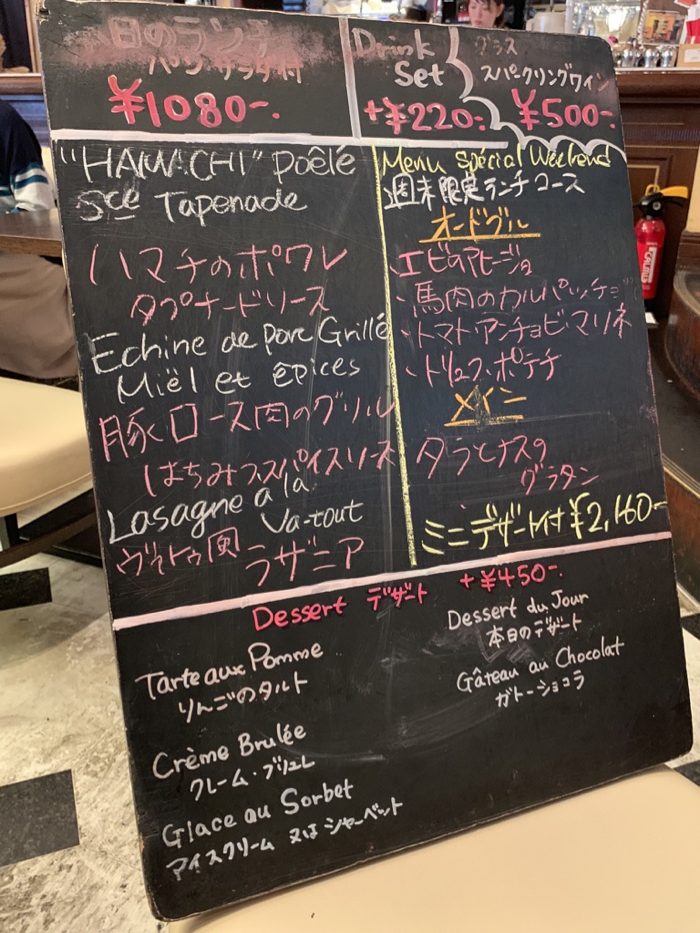 日のランチ
パン サラダ付
¥1080-.
Drink
Set
+¥220-.
グラス
スパークリングワイン
¥500-.
"HAMACHI" Poêlé
Sce Tapenade
ハマチのポワレ
タプナードソース
Echine de porc Grillé
Miël et épices
豚ロース肉のグリル
はちみつスパイスソース
Lasagne a la
Va-tout
ヴァトゥ風 ラザニア
Menu Spécial Weekend
週末限定ランチコース
オードヴル
・エビのアヒージョ
・馬肉のカルパッチョ
・トマト・アンチョビ・マリネ
・トリュフ・ポテチ
メイン
タラとナスの
グラタン
ミニデザート付 ¥2,160-
Dessert デザート +¥450-.
Tarte aux Pomme
りんごのタルト
Crème Brulée
クレーム・ブリュレ
Glace au Sorbet
アイスクリーム 又は シャーベット
Dessert du Jour
本日のデザート
Gâteau au Chocolat
ガトーショコラ